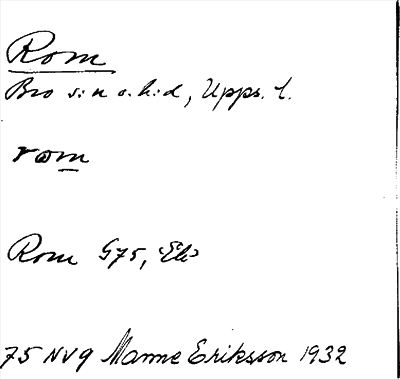 Rom
Bro s:n o. h:d, Upps. l.
rom
Rom G75, Ek>
75 NV9 Manne Eriksson 1932